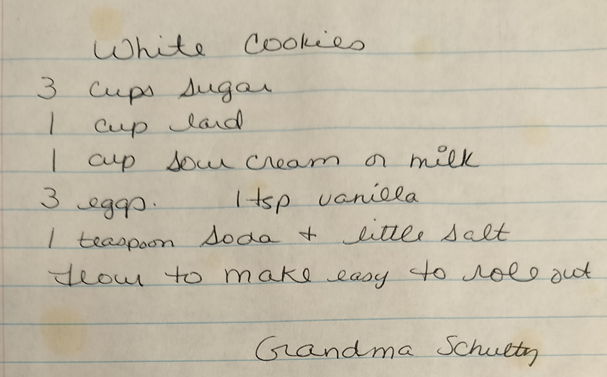 White Cookies
3 cups sugar
1 cup lard
1 cup sour cream or milk
3 eggs. 1 tsp vanilla
1 teaspoon soda + little salt
flour to make easy to role out
Grandma Schultz